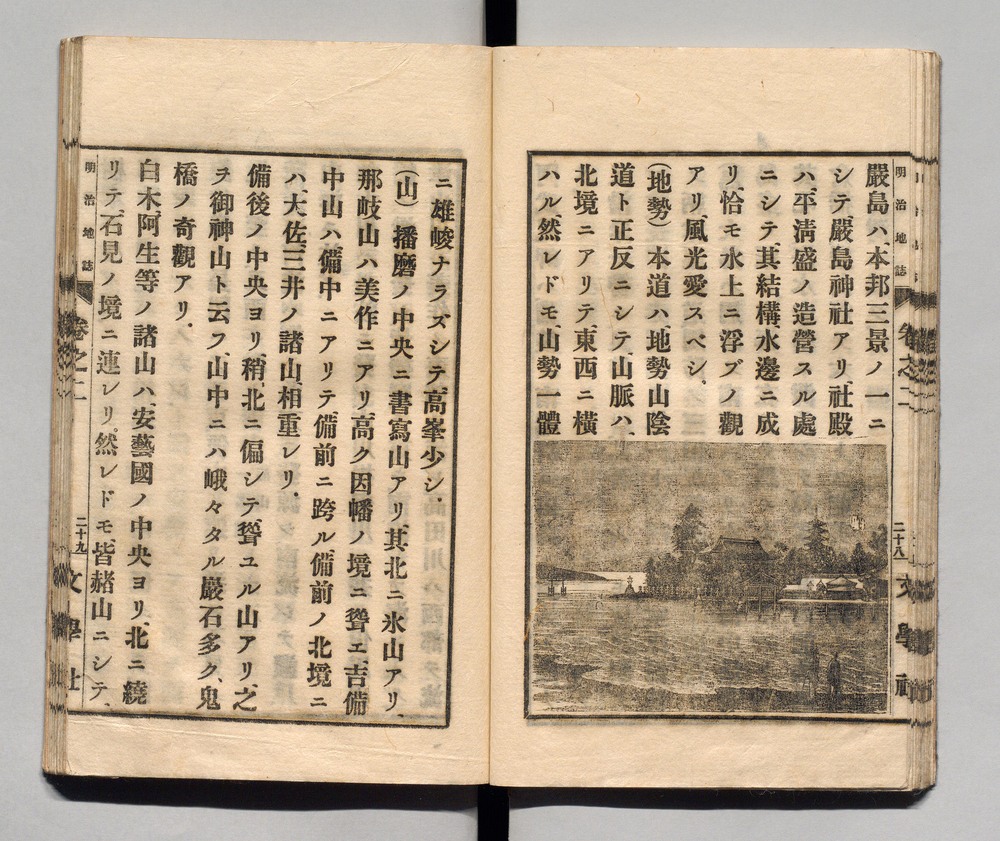 嚴島ハ、本邦三景ノ一ニ
シテ、嚴島神社アリ、社殿
ハ、平淸盛ノ造營スル處
ニシテ、其結構、水邊ニ成
リ、恰モ水上ニ浮ブノ觀
アリ、風光愛スベシ。
(地勢)本道ハ、地勢山陰
道ト正反ニシテ、山脈ハ、
北境ニアリテ、東西ニ橫
ハル、然レドモ、山勢一體
明治地誌 卷之二 二十八 文學社
ニ雄峻ナラズシテ、高峯少シ。
(山)播磨ノ中央ニ書寫山アリ、其北ニ氷山アリ、
那岐山ハ美作ニアリ、高ク因幡ノ境ニ聳エ、吉備
中山ハ、備中ニアリテ備前ニ跨ル、備前ノ北境ニ
ハ、大佐、三井ノ諸山、相重レリ。
備後ノ中央ヨリ、稍、北ニ偏シテ、聳ユル山アリ、之
ヲ御神山ト云フ、山中ニハ峨々タル嚴石多ク、鬼
橋ノ奇觀アリ。
白木、阿生等ノ諸山ハ、安藝國ノ中央ヨリ、北ニ繞
リテ、石見ノ境ニ連レリ。然レドモ、皆赭山ニシテ、
明治地誌 卷之二 二十九 文學社